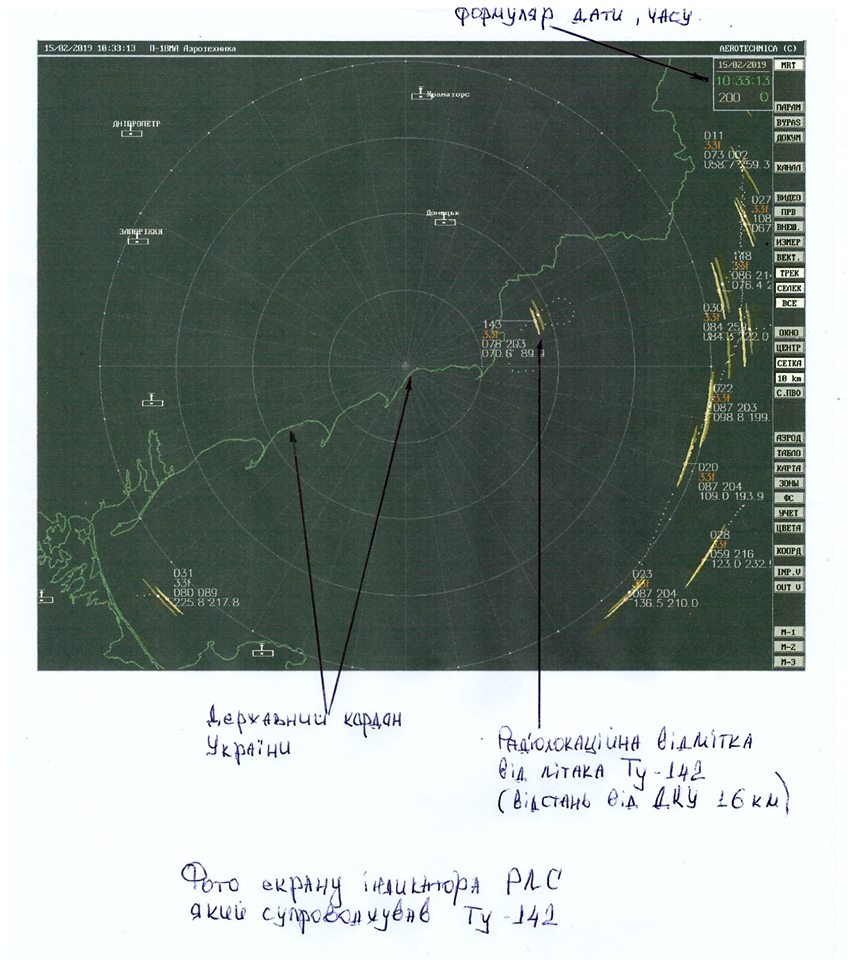 формуляр дати, часу
15/02/2019 10:33:13 П-18МА Аэротехника
AEROTECHNICA (C)
15/02/2019
10:33:13
200 0
MRT
ПАРАМ
BYPAS
ДОКУМ
КАНАЛ
ВИДЕО
ПРВ
ВНЕШ.
ИЗМЕР
ВЕКТ.
ТРЕК
СЕЛЕК
ВСЕ
ОКНО
ЦЕНТР
СЕТКА
10 km
С.ПВО
АЭРОД
ТАБЛО
КАРТА
ЗОНЫ
ФС
УЧЕТ
ЦВЕТА
КООРД
IMP.V
OUT V
М-1
М-2
М-3
Краматорс
ДНІПРОПЕТР
ЗАПОРІЖЖЯ
Донецьк
011
33г
073 002
058.7 259.3
027
33г
108
067
33г
086 21
076.4 2
030
33г
084 259
222.0
143
33г
078 203
070.6 89.9
022
33г
087 203
098.8 199.
020
33г
087 204
109.0 193.9
028
33г
059 216
123.0 232.
023
33г
087 204
136.5 210.0
031
33г
080 089
225.8 217.8
Державний кордон
України
Радіолокаційна відмітка
від літака Ту-142
(відстань від ДКУ 16 км)
Фото екрану індикатора РЛС
який супроводжував Ту-142